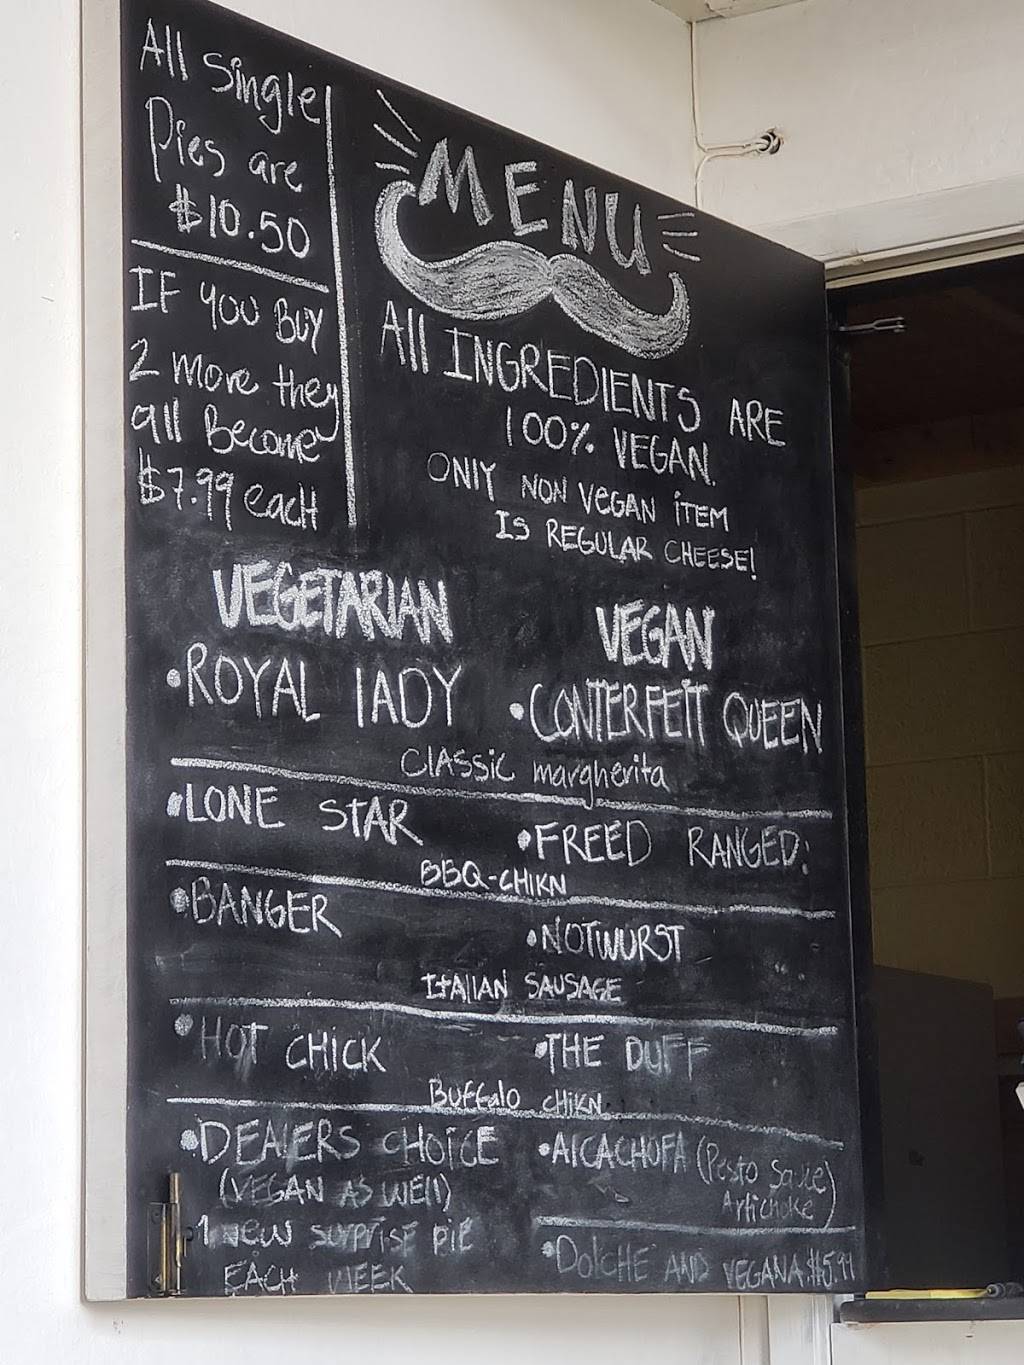 All single
Pies are
$10.50
IF you BUY
2 more they
all Become
$7.99 each
MENU
All INGREDIENTS ARE
100% VEGAN.
ONLY NON VEGAN ITEM
IS REGULAR CHEESE!
VEGETARIAN
• ROYAL LADY
• LONE STAR
• BANGER
• HOT CHICK
• DEALERS CHOICE
(VEGAN AS WEll)
1 NEW SURPRISE PIE
EACH WEEK
VEGAN
• CONTERFEIT QUEEN
Classic margherita
• FREED RANGED:
BBQ-CHIKN
• NOTWURST
ITALIAN SAUSAGE
• THE DUFF
Buffalo CHIKN
• AlCACHOFA (Pesto Sauce)
Artichoke
• DOLCHE AND VEGANA $5.99